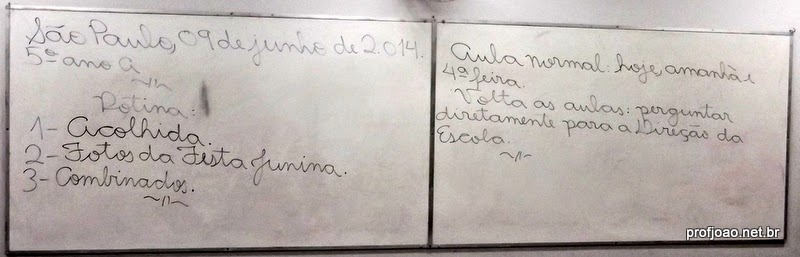 São Paulo, 09 de junho de 2.014.
5º ano A
Rotina:
1- Acolhida.
2- Fotos da Festa Junina.
3- Combinados.
Aula normal: hoje, amanhã e
4ª feira.
Volta as aulas: perguntar
diretamente para a Direção da
Escola.
profjoao.net.br